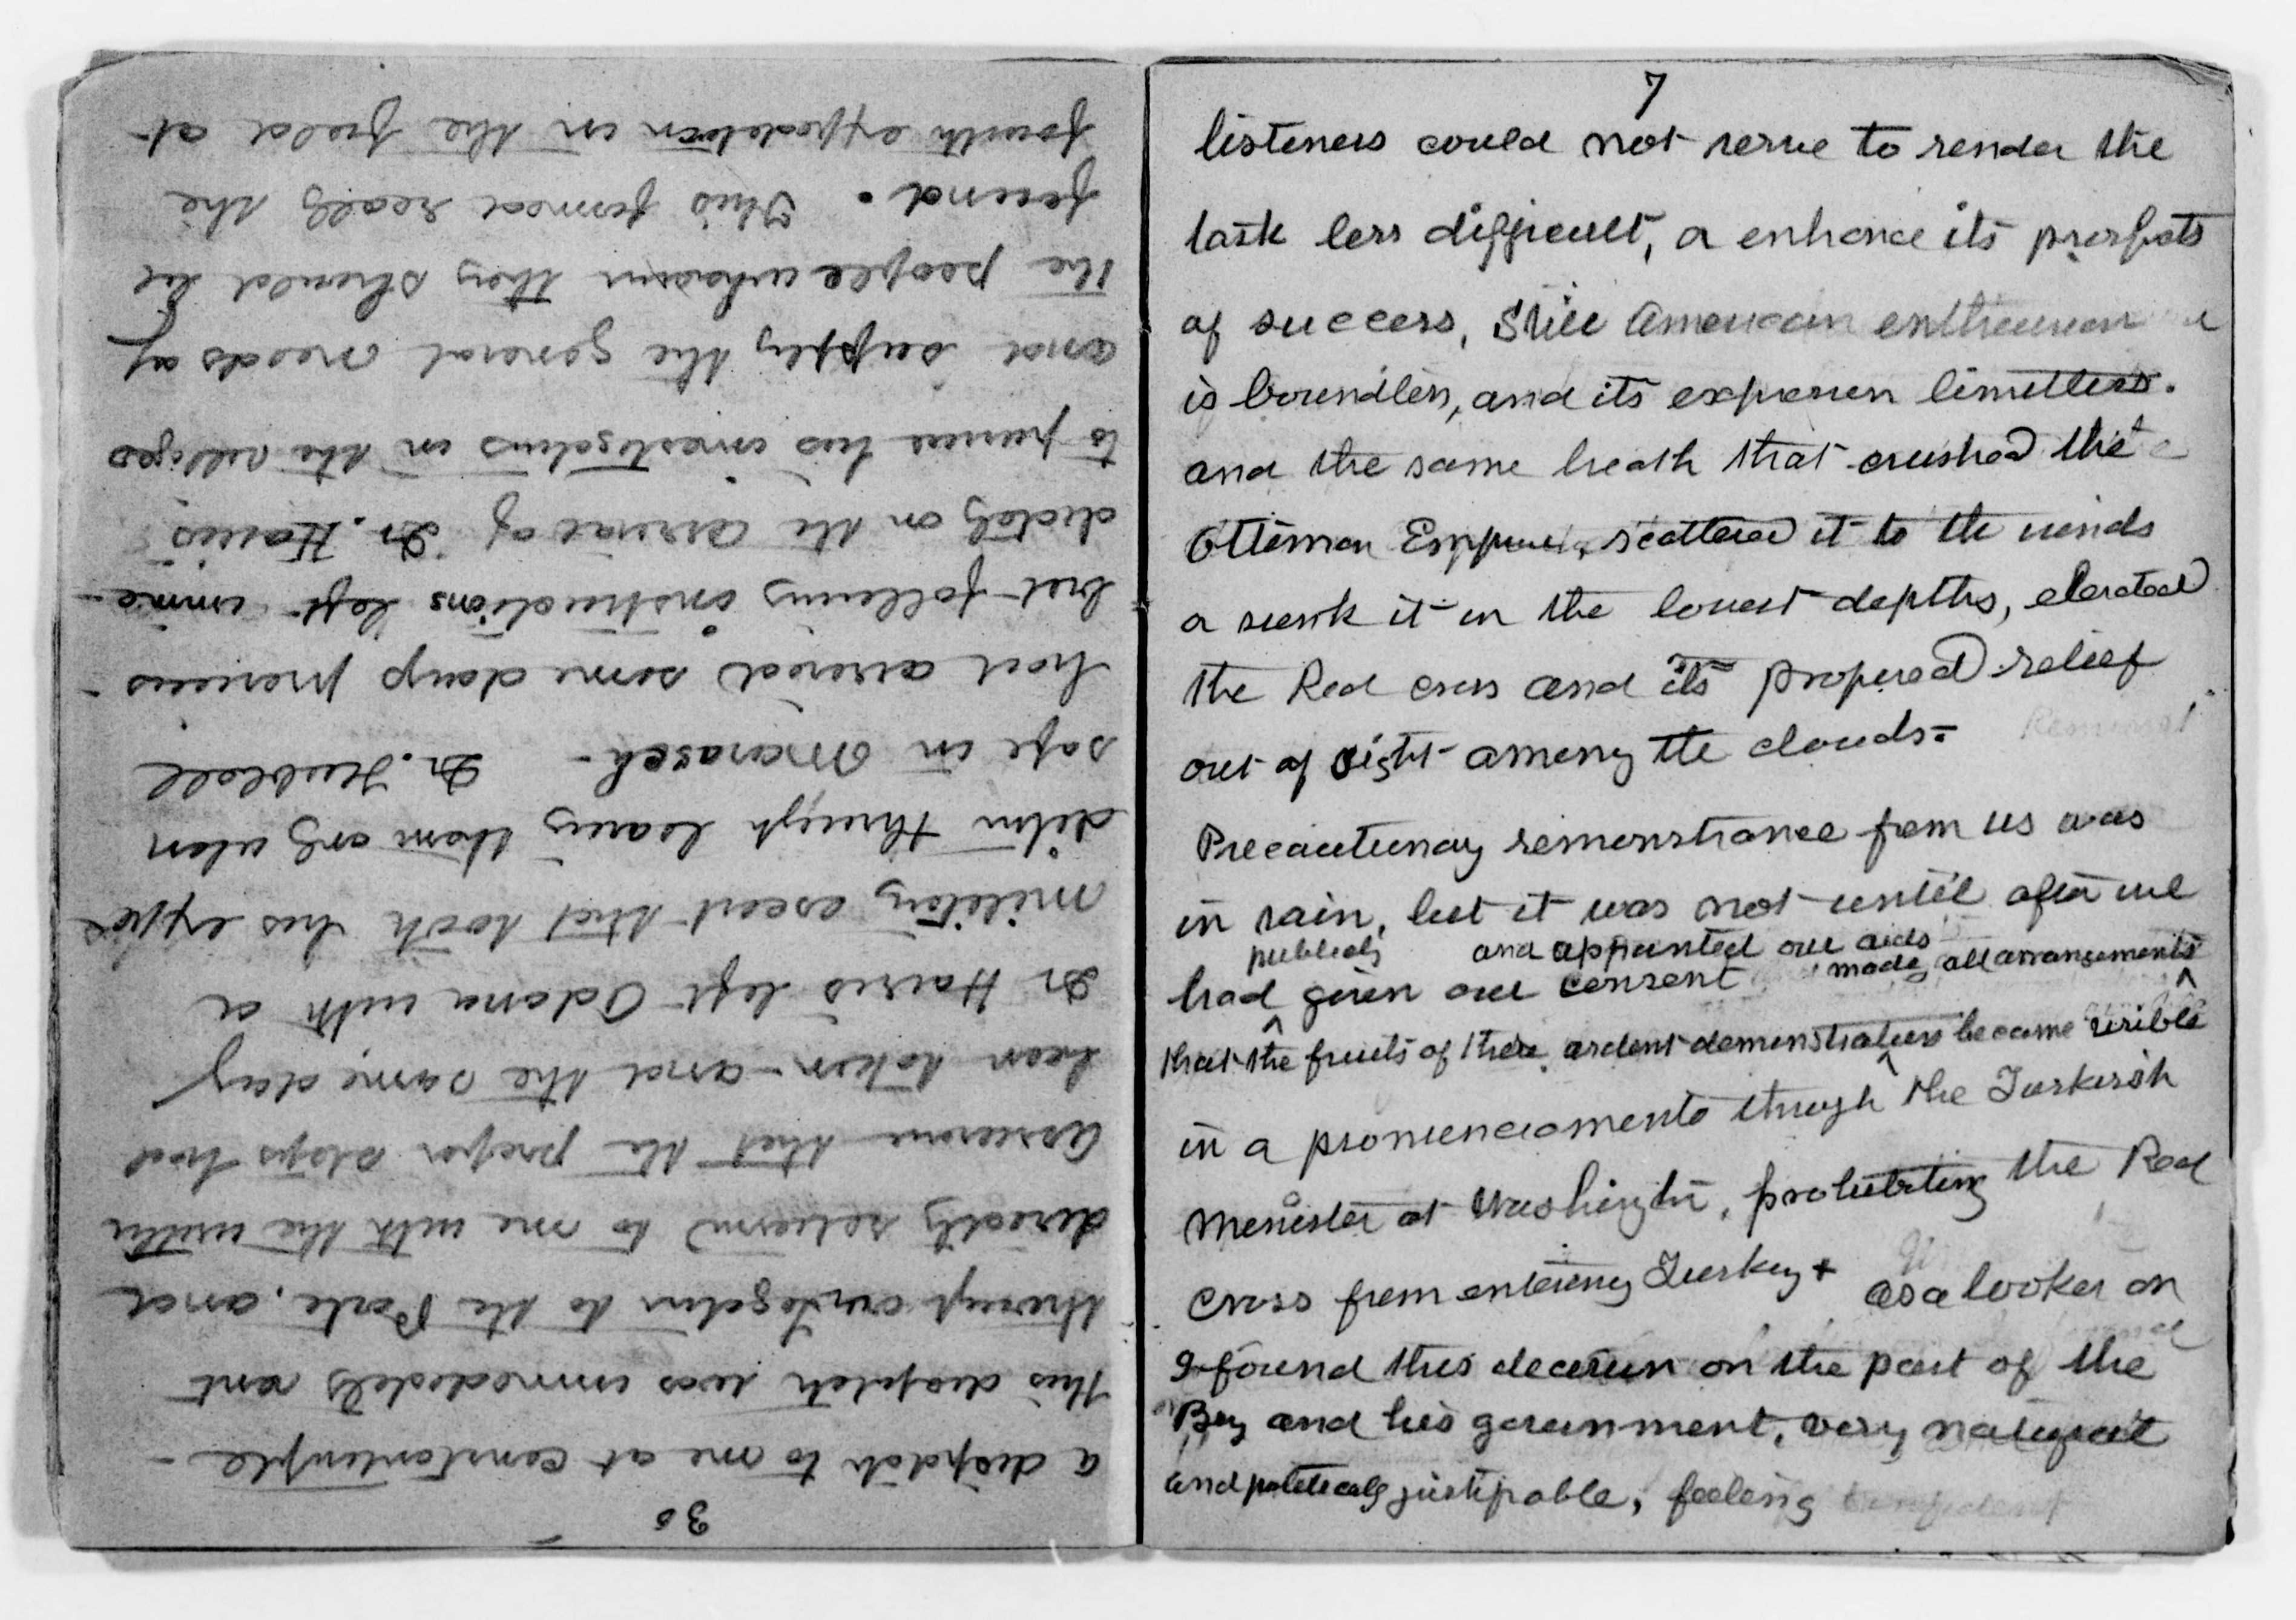 30
a dispatch to me at constantinople -
this dispatch was immediately sent
through our legation to the Porte, and
directly returned to me with the written
assurance that the proper steps had
been taken - and the same day
Dr Harris left Adana with a
military escort that took his expe
dition through leaving them only when
safe in Marash - Dr. Hubbell
had arrived some days previous -
but following instructions left imme-
diately on the arrival of Dr. Harris,
to pursue his investigations in the villages
and supply the general needs of
the people whoever they should be
found. This formed really the
fourth expedition in the field at
7
listeners could not serve to render the
task less difficult, or enhance its prospects
of success, Still American enthusiasm
is boundless, and its expression limitless.
and the same breath that crushed the
Ottoman Empire, scattered it to the winds
or sunk it in the lowest depths, elevated
the Red cross and its proposed relief
out of sight among the clouds -
Precautionary remonstrance from us was
in vain, but it was not until after we
publicly and appointed our aids
had given our consent made all arrangements
that the fruits of these ardent demonstrations became visible
in a pronunciamento through the Turkish
Minister at Washington, prohibiting the Red
Cross from entering Turkey + as a looker on
I found this decision on the part of the
Bey and his government, very natural
and politically justifiable, feeling